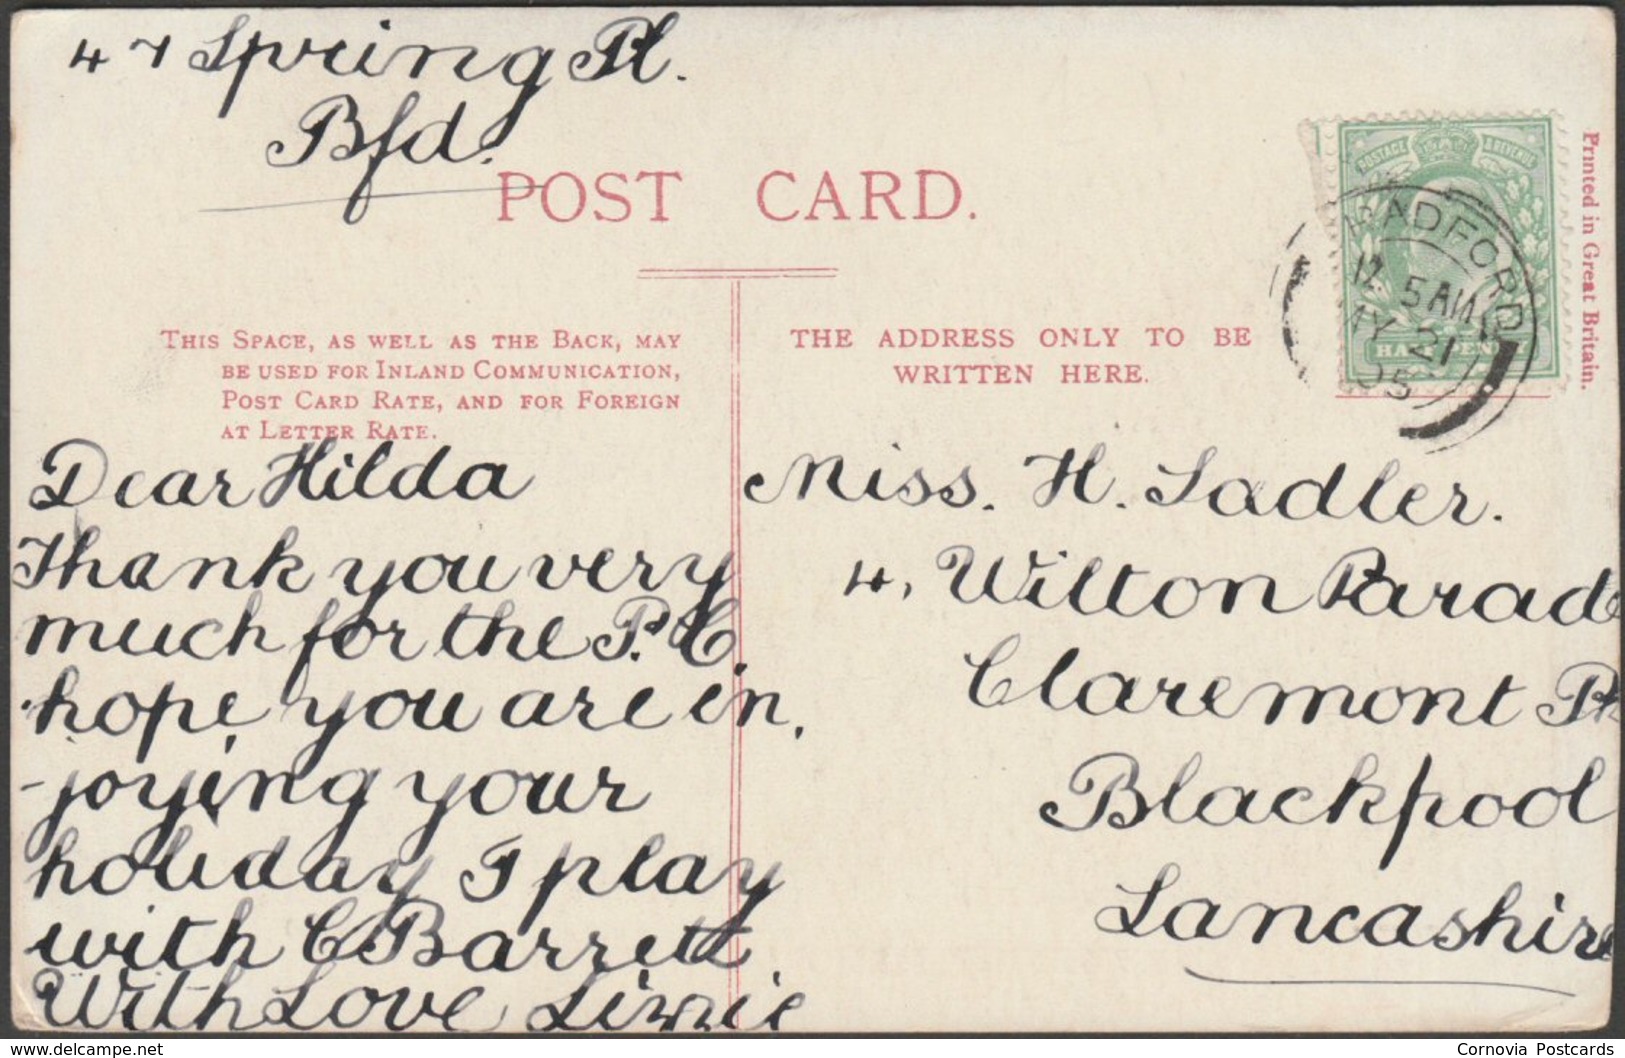 47 Spring Pl.
Bfd.
POST CARD.
THIS SPACE, AS WELL AS THE BACK, MAY
BE USED FOR INLAND COMMUNICATION,
POST CARD RATE, AND FOR FOREIGN
AT LETTER RATE.
Dear Hilda
Thank you very
much for the P.C.
hope you are en,
-joying your
holiday I play
with C Barrett
With Love Lizzie
THE ADDRESS ONLY TO BE
WRITTEN HERE.
POSTAGE & REVENUE
HALFPENNY
BRADFORD
12. 5 AM
MY 21
05
Printed in Great Britain.
Miss. H. Sadler.
4, Wilton Parade
Claremont Pk
Blackpool
Lancashire
delcampe.net
Cornovia Postcards